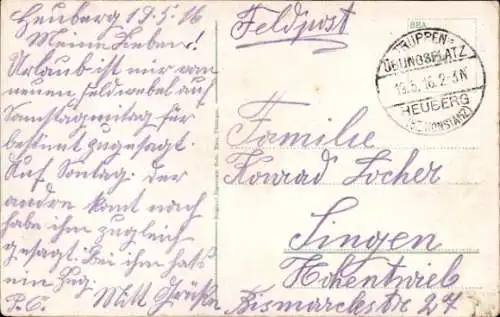 Heuberg 19.5.16
Meine Lieben!
Urlaub ist mir vom
neuen Feldwebel auf
Samstagmittag für
bestimmt zugesagt.
Auf Sontag. der
andre komt nach
habe ihm zugleich
gesagt. Bei ihm hats
ein Zug.
P.C. Mitt Grüßen
Feldpost
TRUPPEN-
ÜBUNGSPLATZ
19.5.16.2-3N
HEUBERG
(BZ. KONSTANZ)
Familie
Konrad Locher
Singen
Hohentwiel
Bismarckstr 27